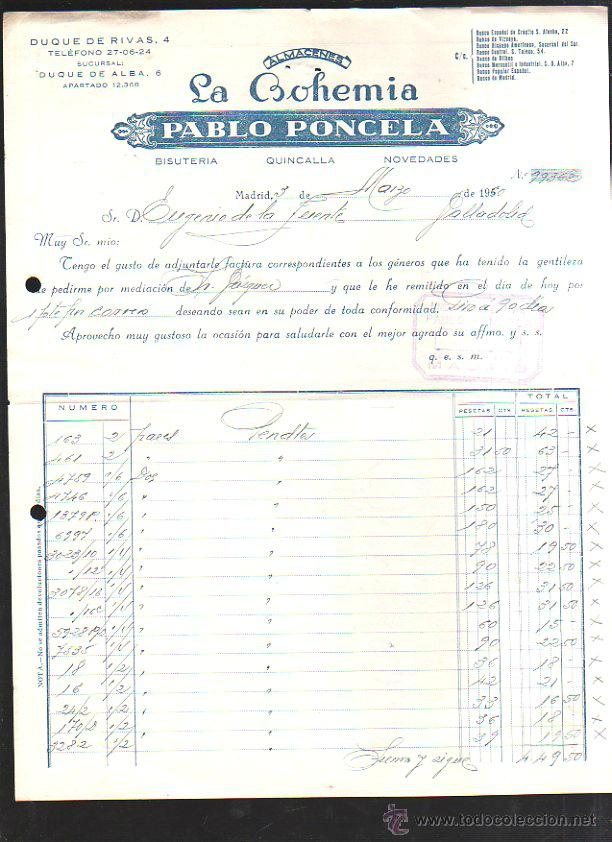 DUQUE DE RIVAS, 4
TELÉFONO 27-06-24
SUCURSAL:
DUQUE DE ALBA, 6
APARTADO 12.068
ALMACENES
La Bohemia
PABLO PONCELA
BISUTERIA QUINCALLA NOVEDADES
C/c.
Banco Español de Crédito S. Aleño, 22
Banco de Vizcaya.
Banco Hispano Americano, Sucursal del Sur.
Banco Central. S. Tainso, 54.
Banco de Bilbao
Banco Mercantil e Industrial. C. D. Alba, 7
Banco Popular Español.
Banco de Madrid.
N.º 99363
Madrid, 3 de Marzo de 1950
Sr. D. Eugenio de la Fuente Valladolid
Muy Sr. mio:
Tengo el gusto de adjuntarle factura correspondientes a los géneros que ha tenido la gentileza
de pedirme por mediación de Sr. Vázquez y que le he remitido en el día de hoy por
pte fin correo deseando sean en su poder de toda conformidad. Giro a 90 dias
Aprovecho muy gustoso la ocasión para saludarle con el mejor agrado su affmo. y s. s.
q. e. s. m.
MADRID
NUMERO PESETAS CTS. TOTAL PESETAS CTS.
163 2/ pares Pendtes 21 42 -
461 2/ " " 31 50 63 -
4759 1/6 Dos " 162 27 -
4746 1/6 " " 162 27 -
1379 P. 1/6 " " 150 25 -
6997 1/6 " " 180 30 -
3023/10 1/4 " " 78 19 50
" /12 1/4 " " 90 22 50
3078/16 1/4 " " 126 31 50
" /16c 1/4 " " 126 31 50
5928 1/4 " " 60 15 -
7535 1/4 " " 90 22 50
18 1/2 " " 36 18 -
16 1/2 " " 42 21 -
24/2 1/2 " " 33 16 50
170/2 1/2 " " 36 18 -
3282 1/2 " " 39 19 50
Suma y sigue 449 50
NOTA.—No se admiten devoluciones pasados días.
www.todocoleccion.net